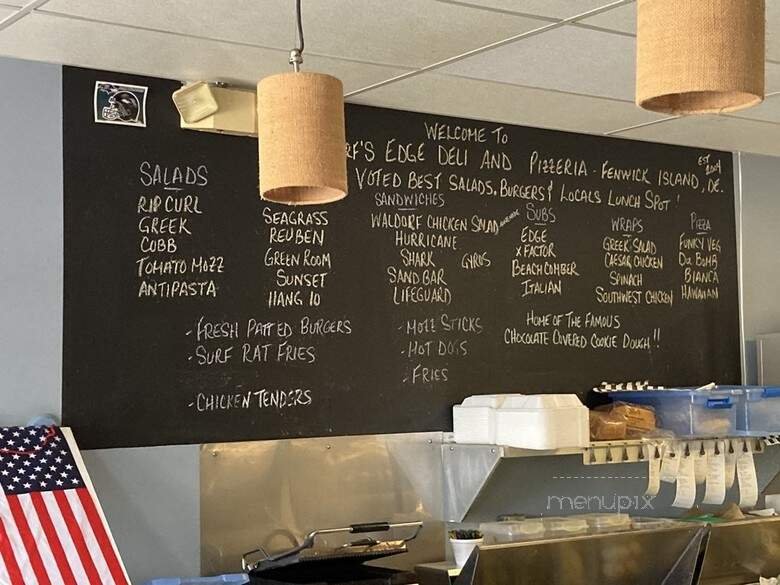 WELCOME TO
RF'S EDGE DELI AND PIZZERIA - FENWICK ISLAND, DE.
EST 2009
VOTED BEST SALADS, BURGERS & LOCALS LUNCH SPOT!
SALADS
RIP CURL
GREEK
COBB
TOMATO MOZZ
ANTIPASTA
SEAGRASS
REUBEN
GREEN ROOM
SUNSET
HANG 10
SANDWICHES
WALDORF CHICKEN SALAD
HURRICANE
SHARK
SAND BAR
LIFEGUARD
GYROS
SUBS
EDGE
X FACTOR
BEACHCOMBER
ITALIAN
WRAPS
GREEK SALAD
CAESAR CHICKEN
SPINACH
SOUTHWEST CHICKEN
PIZZA
FUNKY VEG
DA BOMB
BIANCA
HAWAIIAN
- FRESH PATTED BURGERS
- SURF RAT FRIES
- CHICKEN TENDERS
- MOZZ STICKS
- HOT DOGS
- FRIES
HOME OF THE FAMOUS
CHOCOLATE COVERED COOKIE DOUGH!!
menupix